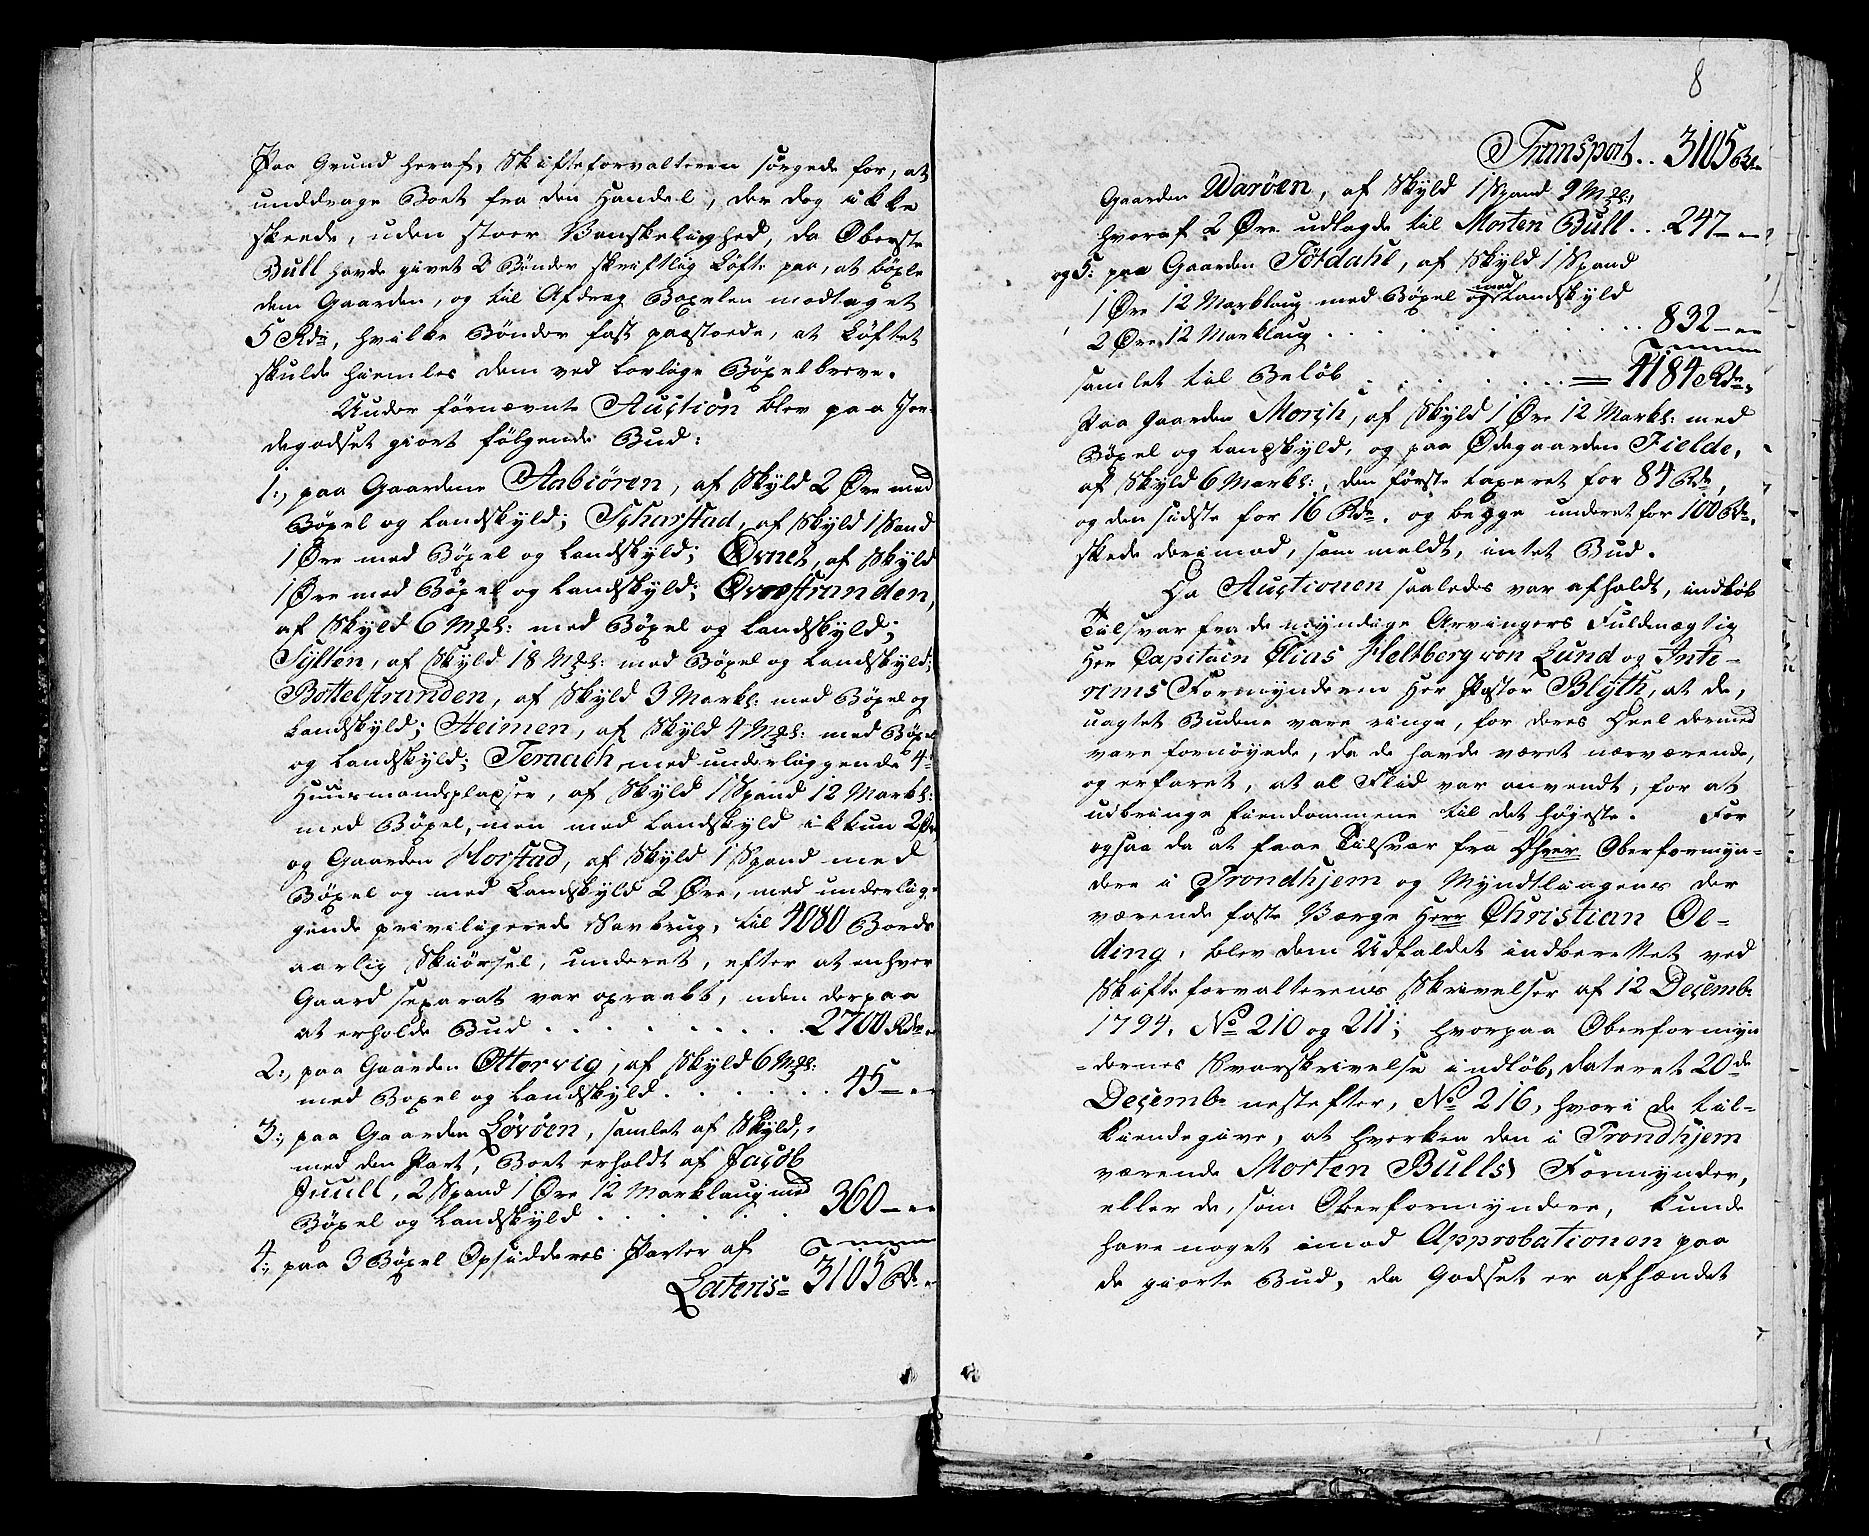 Paa Grund heraf, Skifteforvalteren sørgede for, at
unddrage Boet fra den Handel, der dog ikke
skeede, uden stoer Vanskelighed, da Oberste
Bull havde givet 2 Bønder skriftlig Løfte paa, at bøxle
dem Gaarden, og til Afdrag Boxelen modtaget
5 Rdr, hvilke Bønder fast paastoede, at Løftet
skulde hiemles dem ved lovlige Bøxelbreve.
Under førnævnte Auction blev paa Jor-
degodset giort følgende Bud:
1:, paa Gaardene Aabiøren, af Skyld 2 Øre med
Bøxel og Landskyld; Scharstad, af Skyld 1 Spand
1 Øre med Bøxel og Landskyld; Ørnet, af Skyld
1 Øre med Bøxel og Landskyld; Ørnestranden,
af Skyld 6 Mrkl: med Bøxel og Landskyld;
Sylten, af Skyld 18 Mrkl: med Bøxel og Landskyld;
Bottelstranden, af Skyld 3 Markl: med Bøxel og
Landskyld; Heimen, af Skyld 4 Mrkl: med Bøxel
og Landskyld; Teraach med underliggende 4
Huusmandspladser, af Skyld 1 Spand 12 Markl:
med Bøxel, men med Landskyld ikkun 2 Øre
og Gaarden Horstad, af Skyld 1 Spand med
Bøxel og med Landskyld 2 Øre, med underlig-
gende priviligerede Savbrug, til 4080 Bords
aarlig Skiørsel, underet, efter at enhver
Gaard separat var opraabt, uden derpaa
at erholde Bud . . . . . . . . 2700 Rdr
2:, paa Gaarden Ottervig, af Skyld 6 Mrkl:
med Boxel og Landskyld . . . . . . 45 -
3:, paa Gaarden Løvøen, samlet af Skyld,
med den Part, Boet erholdt af Jacob
Juull, 2 Spand 1 Øre 12 Marklaug med
Bøxel og Landskyld . . . . . . 360 -
4:, paa 3 Bøxel Opsidderes Parter af
Lateris = 3105 Rdr
8
Transport . . 3105 Rdr
Gaarden Warøen, af Skyld 1 Spand 9 Mrkl:
hvoraf 2 Øre udlagde til Morten Bull . . . 247 -
og 5: paa Gaarden Tøtdahl, af Skyld 1 Spand
1 Øre 12 Marklaug med Bøxel og med Landskyld
2 Øre 12 Marklaug . . . . . . . . 832 -
samlet til Beløb . . . . . . . = 4184 Rdr
Paa Gaarden Morch, af Skyld 1 Øre 12 Markl: med
Bøxel og Landskyld, og paa Ødegaarden Fielde,
af Skyld 6 Markl:, den første taxeret for 84 Rdr,
og den sidste for 16 Rdr. og begge underet for 100 Rdr.
skede derimod, som meldt, intet Bud.
Da Auctionen saaledes var afholdt, indløb
Tilsvar fra de myndige Arvingers Fuldmægtig
Her Capitain Elias Heltberg von Lund og Inte-
rims Formynderen Her Pastor Blyth, at de,
uagtet Budene vare ringe, for deres Deel dermed
vare fornøyede, da de havde været nærværende,
og erfaret, at al Flid var anvendt, for at
udbringe Eiendommene til det høyeste. For
ogsaa da at faae Tilsvar fra Dhrer Oberformyn-
dere i Trondhjem og Myndtlingenes der
værende faste Værge Herr Christian Oe-
ding, blev dem Udfaldet indberettet ved
Skifteforvalterens Skrivelser af 12 Decembr
1794, No 210 og 211; hvorpaa Oberformyn
-dernes Svarskrivelse indløb, dateret 20de
Decembr nestefter, No 216, hvori de til-
kiendegive, at hverken den i Trondhjem
værende Morten Bulls Formynder,
eller de, som Oberformyndere, kunde
have noget imod Approbationen paa
de giorte Bud, da Godset er afhændet